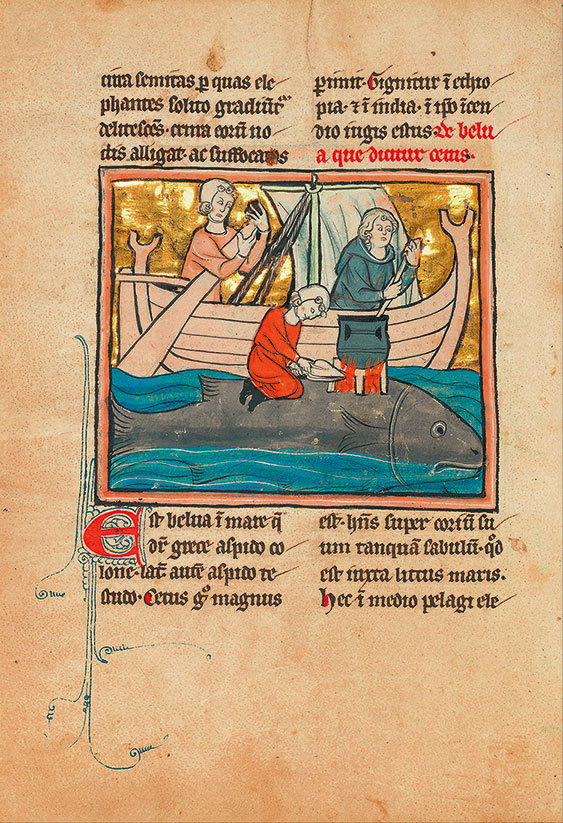 circa semitas ꝑ quas ele
phantes solito gradiũtᷣ
delitescẽs. crura eorũ no
dis alligat. ac suffocatos
ꝑimit. Gignitur ĩ ethio
pia. ⁊ ĩ india. ĩ ip̃o ĩcen
dio iugis estus. De belu
a que dicitur cetus.
Est belua ĩ mare q̃
dr̃ grece aspido co
lone. lat̃. aut̃ aspido te
studo. Cetus gͦ magnus
est. hñs super coriũ su
um tanquã sabulũ. qͦd
est iuxta littus maris.
Hec ĩ medio pelagi ele